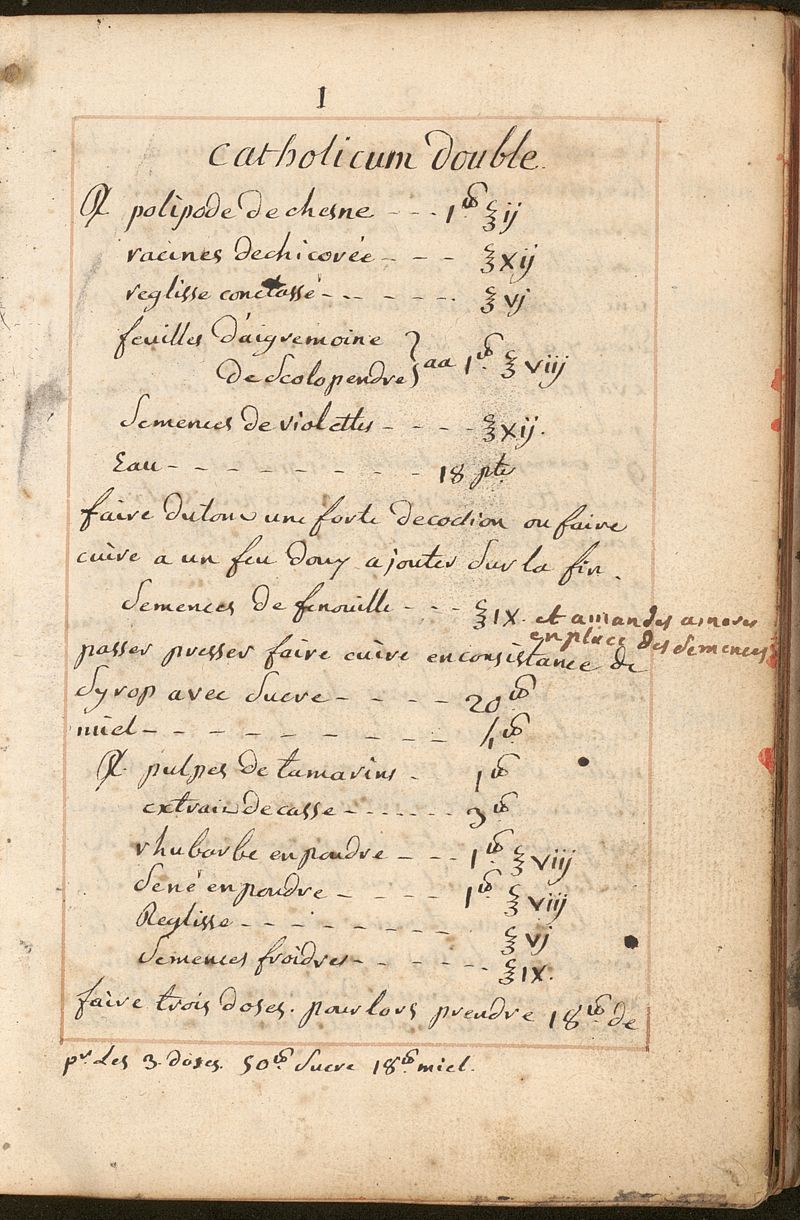 1
Catholicum double.
℞ polipode de chesne - - - 1 ℔ ℥ij
racines de chicorée - - - ℥xij
reglisse contassé - - - - - - ℥vj
feuilles d'aigremoine
de scolopendre } aa 1 ℔ ℥viij
Semences de violettes - - - - ℥xij.
Eau - - - - - - - - - 18 pte
faire du tout une forte decoction ou faire
cuire a un feu doux ajouter sur la fin.
Semences de fenouille - - - ℥IX. et amandes ameres
en place des semences
passer presser faire cuire en consistance de
Syrop avec Sucre - - - - - 20 ℔
miel - - - - - - - - - 4 ℔
℞ pulpes de tamarins . 1 ℔
extrait de casse - - - - - - - 3 ℔
rhubarbe en poudre - - - 1 ℔ ℥viij
Sené en poudre - - - - - 1 ℔ ℥viij
Reglisse - - - - - - - - ℥vj
Semences froides - - - - - - ℥IX.
faire trois doses. pour lors prendre 18 ℔ de
pr. Les 3. doses. 50 ℔ Sucre 18 ℔ miel.